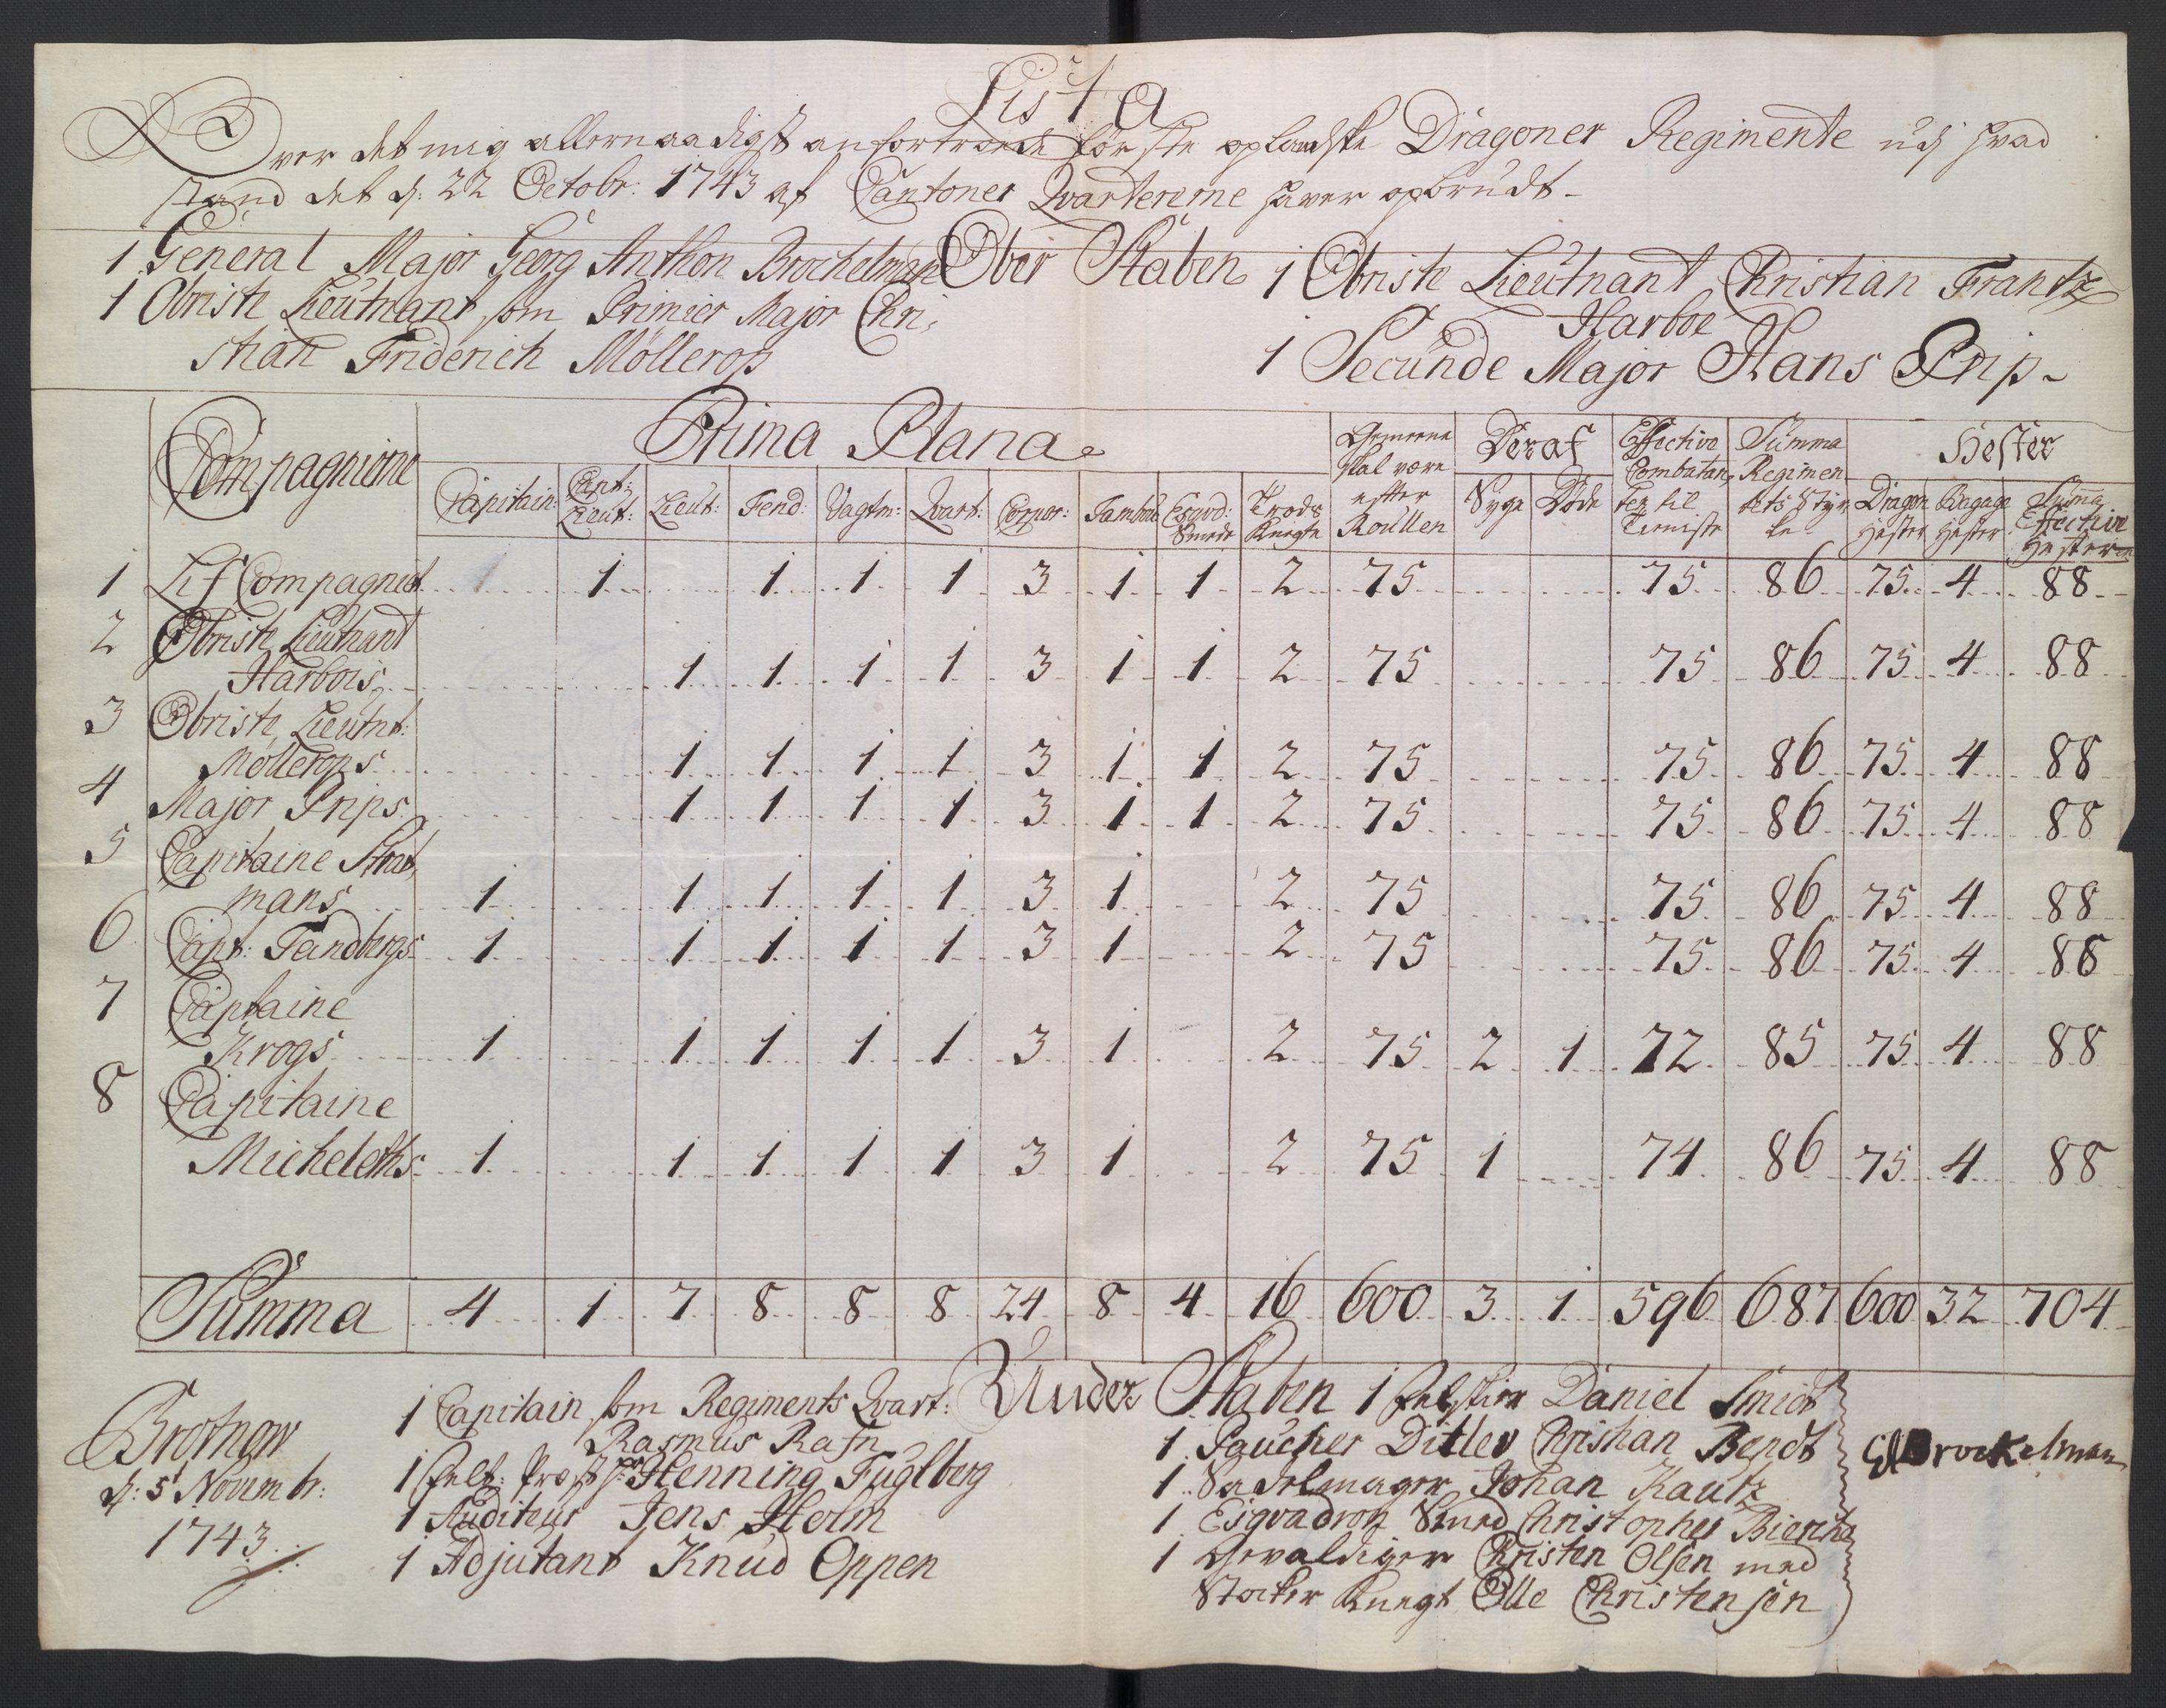 Lista
Over det mig allernaadigst anfortroede förste oplandske Dragoner Regimente udj hvad
stand det d: 22 Octobr: 1743 af Cantoner Qvartererne haver opbrudt.
Ober Staben
1 General Major Georg Anthon Brochelman
1 Obriste Lieutnant som Primier Major Chri,
stian Friderich Möllerop
1 Obriste Lieutnant Christian Frantz
Harboe
1 Secunde Major Hans Prip.
Compagnierne | Prima Plana | Gemeene skal være effter Roullen | Deraf | Effective Combatan, ter til Tieniste | Summa Regimen, tets Styr, ke | Hester
Capitain: | Capt: Lieut: | Lieut: | Fend: | Vagtm: | Qvart: | Corpor: | Tambou | Esqvd: Smede | Trods Knegte | Syge | Döde | Dragon Hester | Bagage Hester | Summa Effective Hesterne
1 Lif Compagniet 1 1 1 1 3 1 1 2 75 75 86 75 4 88
2 Obriste Lieutnant
Harbois 1 1 1 1 3 1 1 2 75 75 86 75 4 88
3 Obriste Lieutnt:
Möllerops 1 1 1 1 3 1 1 2 75 75 86 75 4 88
4 Major Prips 1 1 1 1 3 1 1 2 75 75 86 75 4 88
5 Capitaine
mans 1 1 1 1 1 3 1 2 75 75 86 75 4 88
6 Capt: Tandbergs 1 1 1 1 1 3 1 2 75 75 86 75 4 88
7 Captaine
Krogs 1 1 1 1 1 3 1 2 75 2 1 72 85 75 4 88
8 Capitaine
Micheleths 1 1 1 1 1 3 1 2 75 1 74 86 75 4 88
Summa 4 1 7 8 8 8 24 8 4 16 600 3 1 596 687 600 32 704
Under Staben
Brotnow
d: 5t Novembr:
1743
1 Capitain som Regiments Qvart:
Rasmus Rafn
1 Felt: Præst Hr Henning Fuglberg
1 Auditeur Jens Holm
1 Adjutant Knud Oppen
1 Feltskier Daniel Smidt
1 Paucher Ditlev Christian Bendt
1 Sadelmager Johan Kautz
1 Esqvadron Smed Christopher
1 Gevaldiger Christen Olsen med
Stocker Knegt Olle Christensen
Brockelman